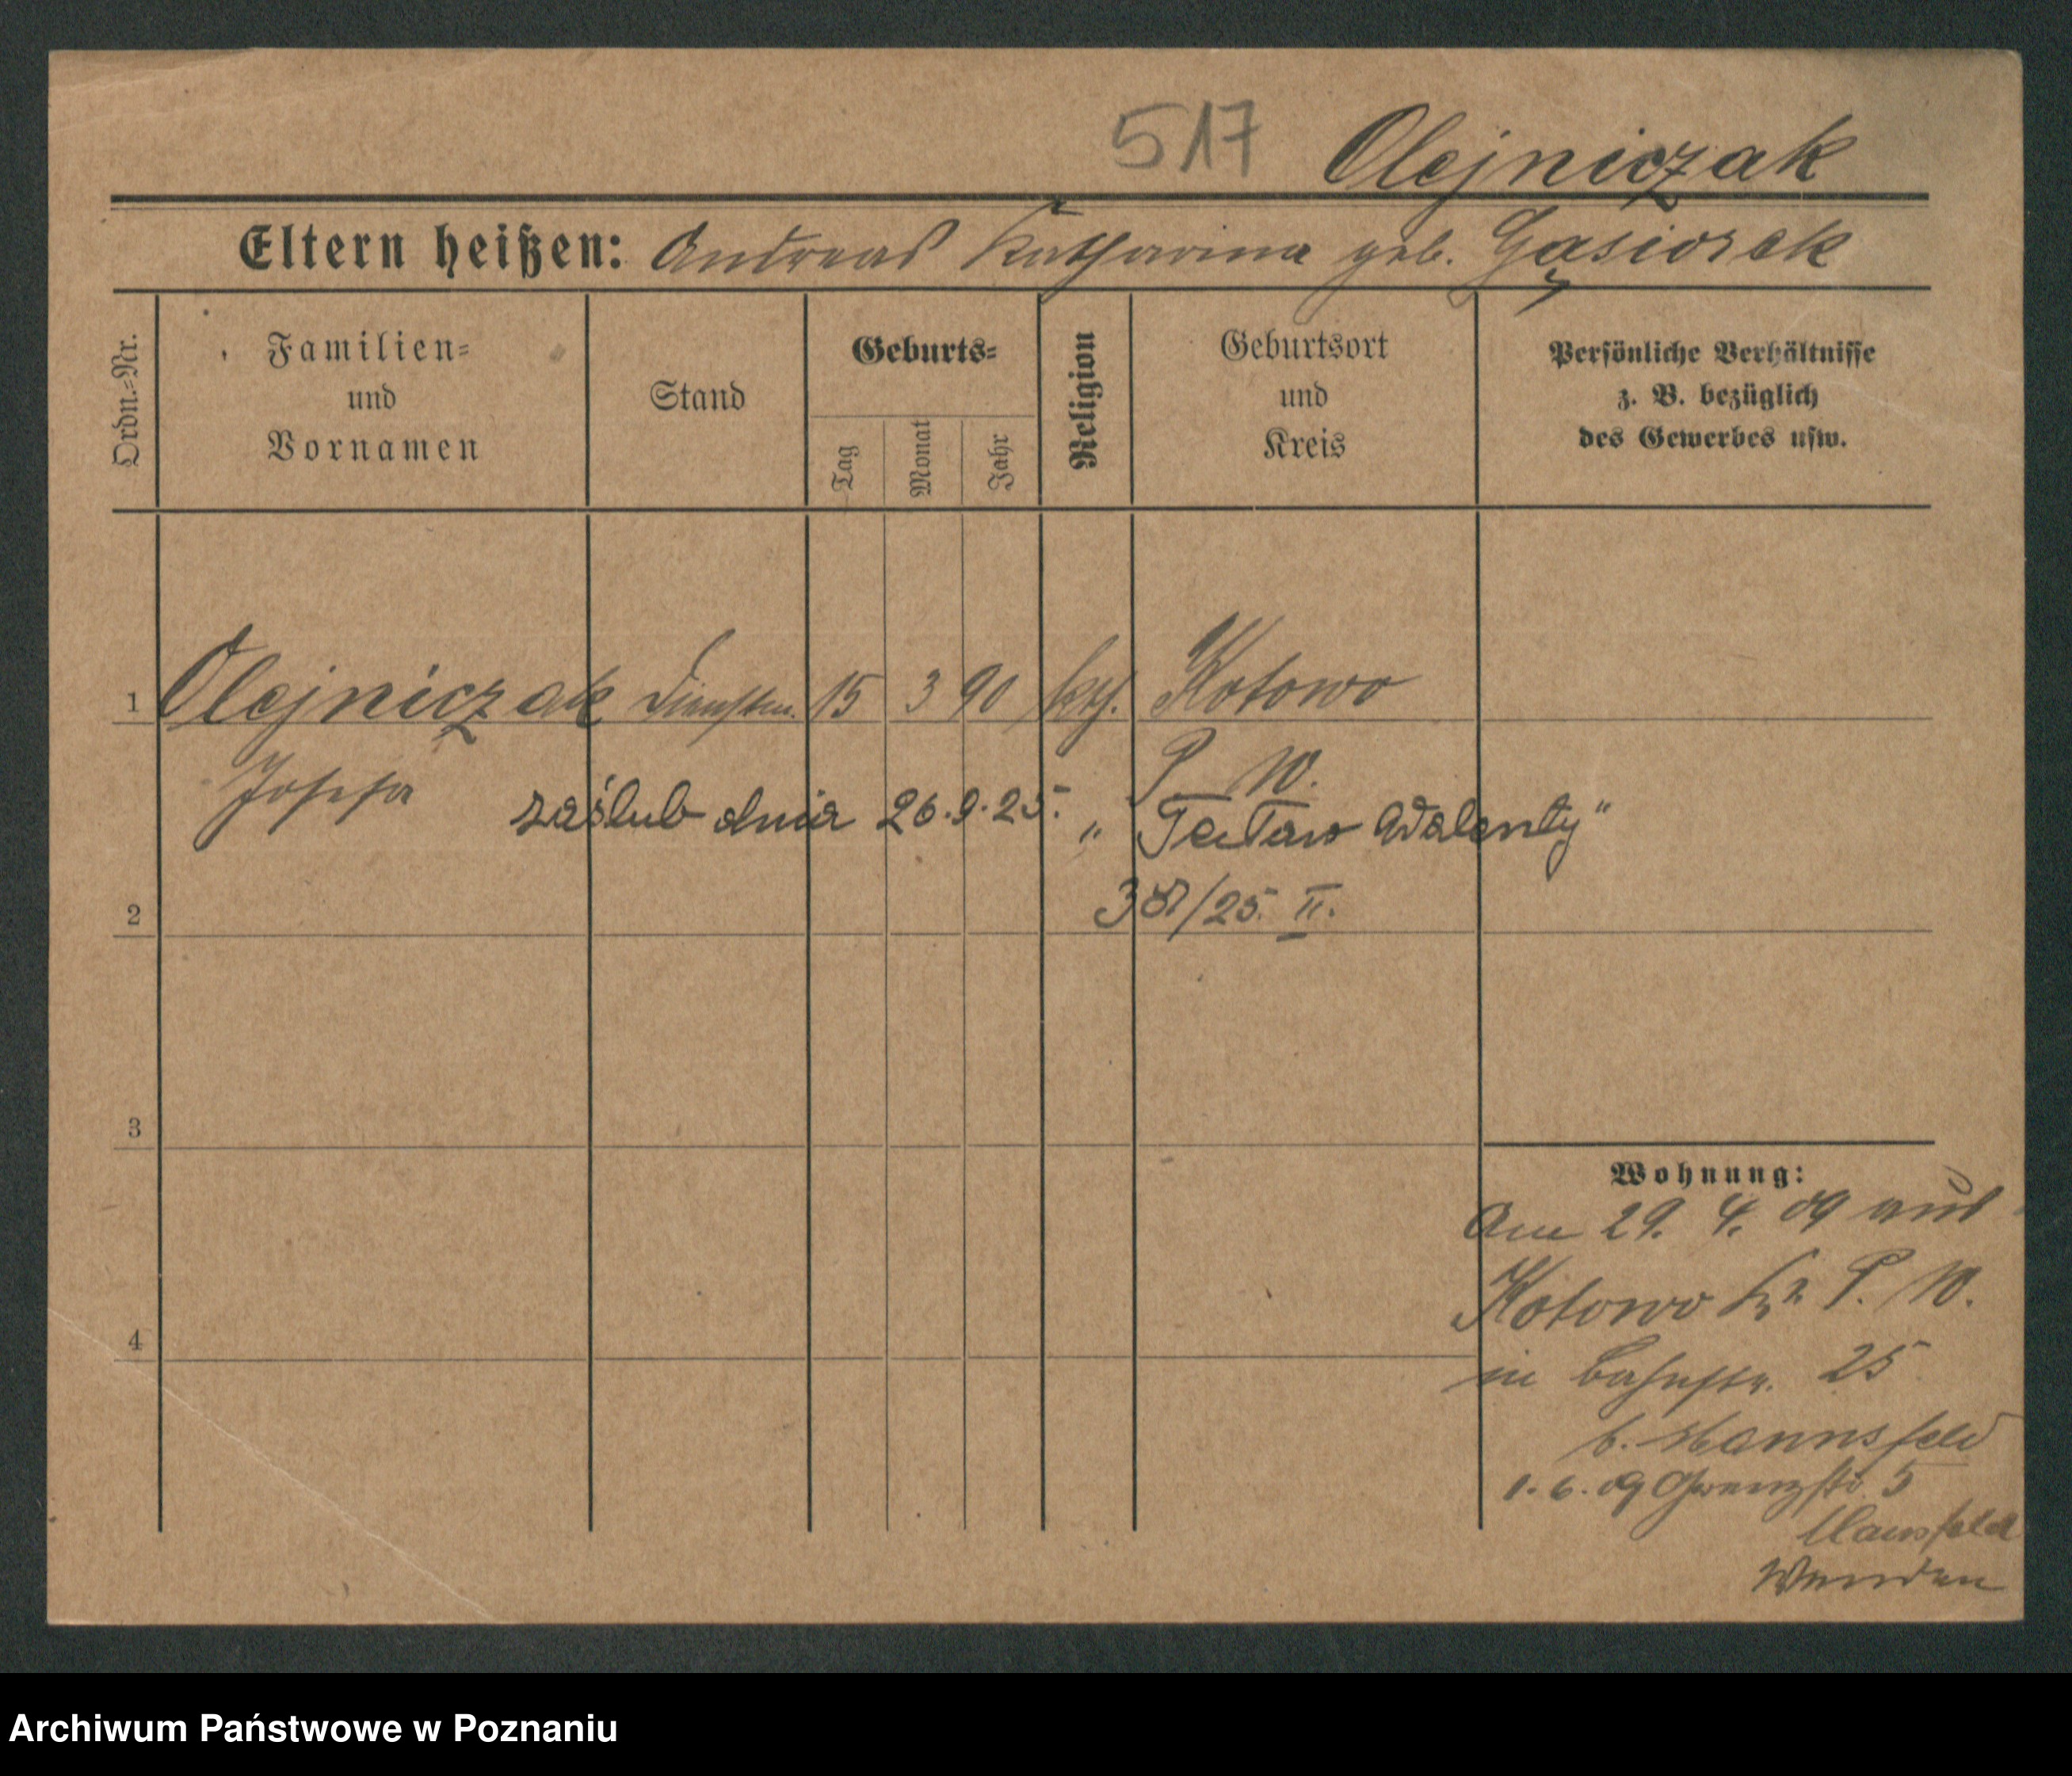 517 Olejniczak
Eltern heißen: Andreas Katharina geb. Gąsiorek
Ordn.-Nr.
Familien-
und
Vornamen
Stand
Geburts-
Tag
Monat
Jahr
Religion
Geburtsort
und
Kreis
Persönliche Verhältnisse
z. B. bezüglich
des Gewerbes usw.
1 Olejniczak Dienstm. 15 3 90 kth. Kotowo
P. W.
Josefa zaślub dnia 26.9.25. „ Walenty"
2 38/25. II.
3
Wohnung:
Am 29. 4. 09 aus
Kotowo Kr P. W.
4
in Bahnstr. 25
b. Mannsfeld
1. 6. 09 5
Mansfeld
Wenden
Archiwum Państwowe w Poznaniu